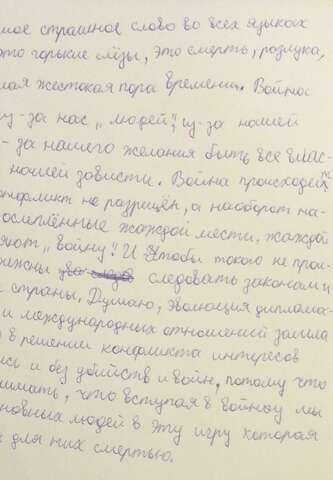 мое страшное слово во всех языках
это горькие слёзы, это смерть, разлука,
мая жестокая пора времени. Война
из-за нас „людей", из-за нашей
-за нашего желания быть все влас-
ночией зависти. Война происходей
онфликт не разрищён, а наоборот на-
ослиплённые жаждой мести, жаждой
яют „войну"! И Чтобы такого не прои-
лжны следовать законам и
е страны. Думаю, эволюция диплома-
и международных отношений зашла
о в решении конфликта интересов
ись и без убийств и войн, потому что
нимать, что вступая в войноу мы
новных людей в эту игру которая
я для них смертью.